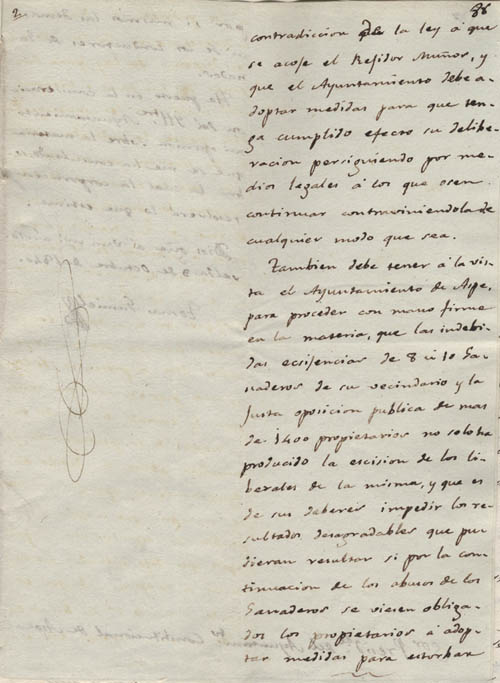 2
86
contradiccion de la ley á que
se acoje el Rejidor Muñoz, y
que el Ayuntamiento debe a-
doptar medidas para que ten-
ga cumplido efecto su delibe-
racion persiguiendo por me-
dios legales á los que osen
continuar contraviniendola de
cualquier modo que sea.
Tambien debe tener á la vis-
ta el Ayuntamiento de Aspe,
para proceder con mano firme
en la materia, que las indebi-
das ecsijencias de 8 ú 10 Ga-
naderos de su vecindario y la
Justa oposicion publica de mas
de 1400 propietarios no solo ha
producido la escision de los li-
berales de la misma, y que es
de sus deberes impedir los re-
sultados desagradables que pu-
dieran resultar si por la con-
tinuacion de los abusos de los
Ganaderos se viesen obliga-
dos los propietarios á adop-
tar medidas para estorbar